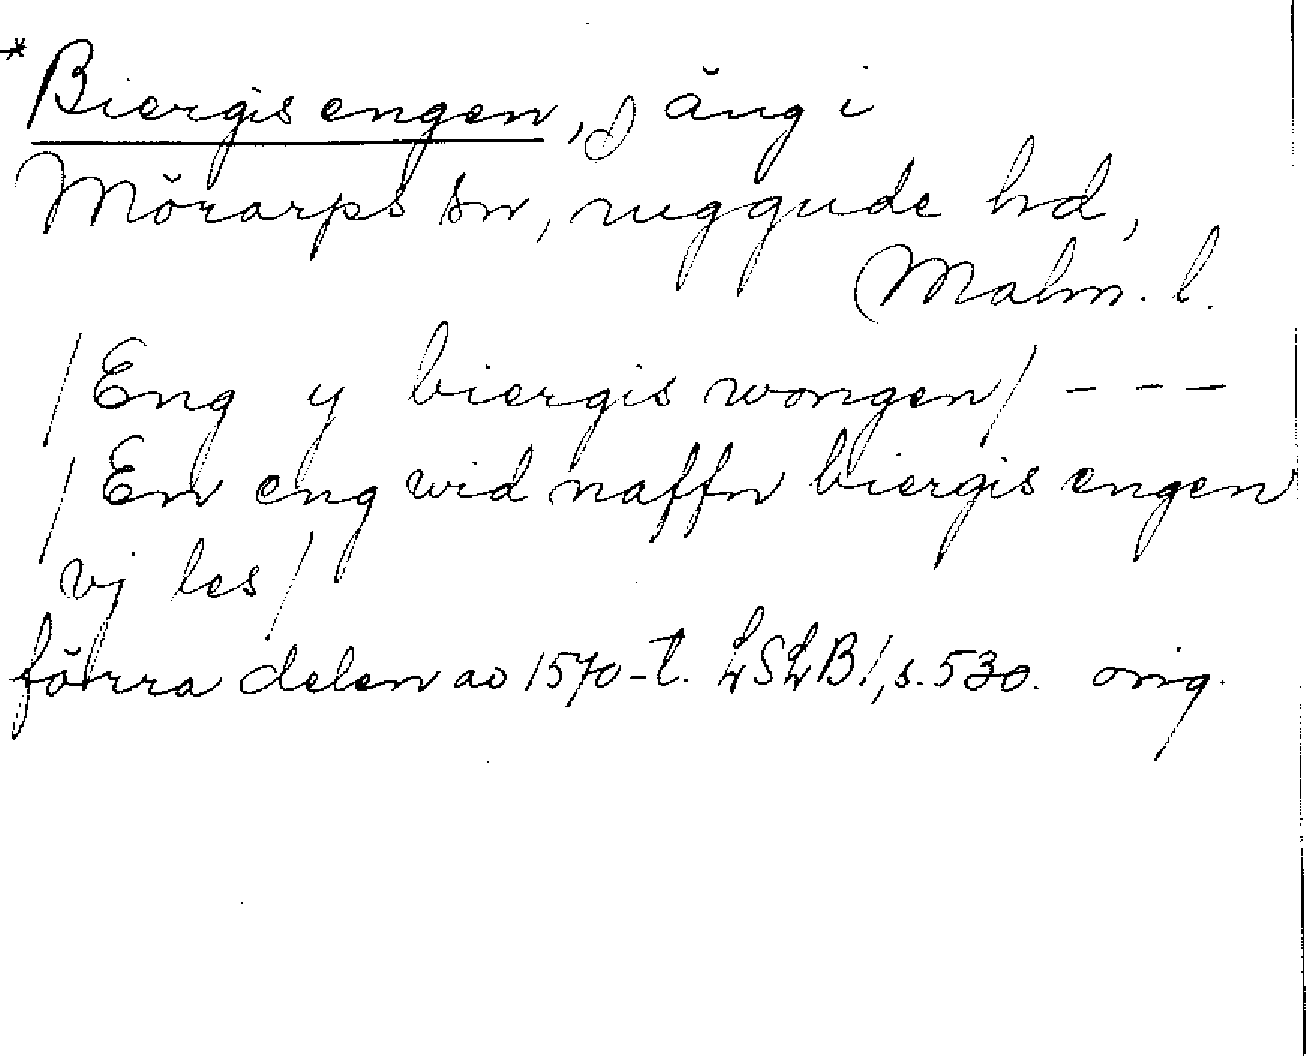 *Biergis engen, äng i
Mörarps sn, Luggude hd,
Malm. l.
/Eng y biergis wongen/ - - -
/En eng wid naffn biergis engen
vj les/
förra delen av 1570-t. LSLB1, s. 530. orig.